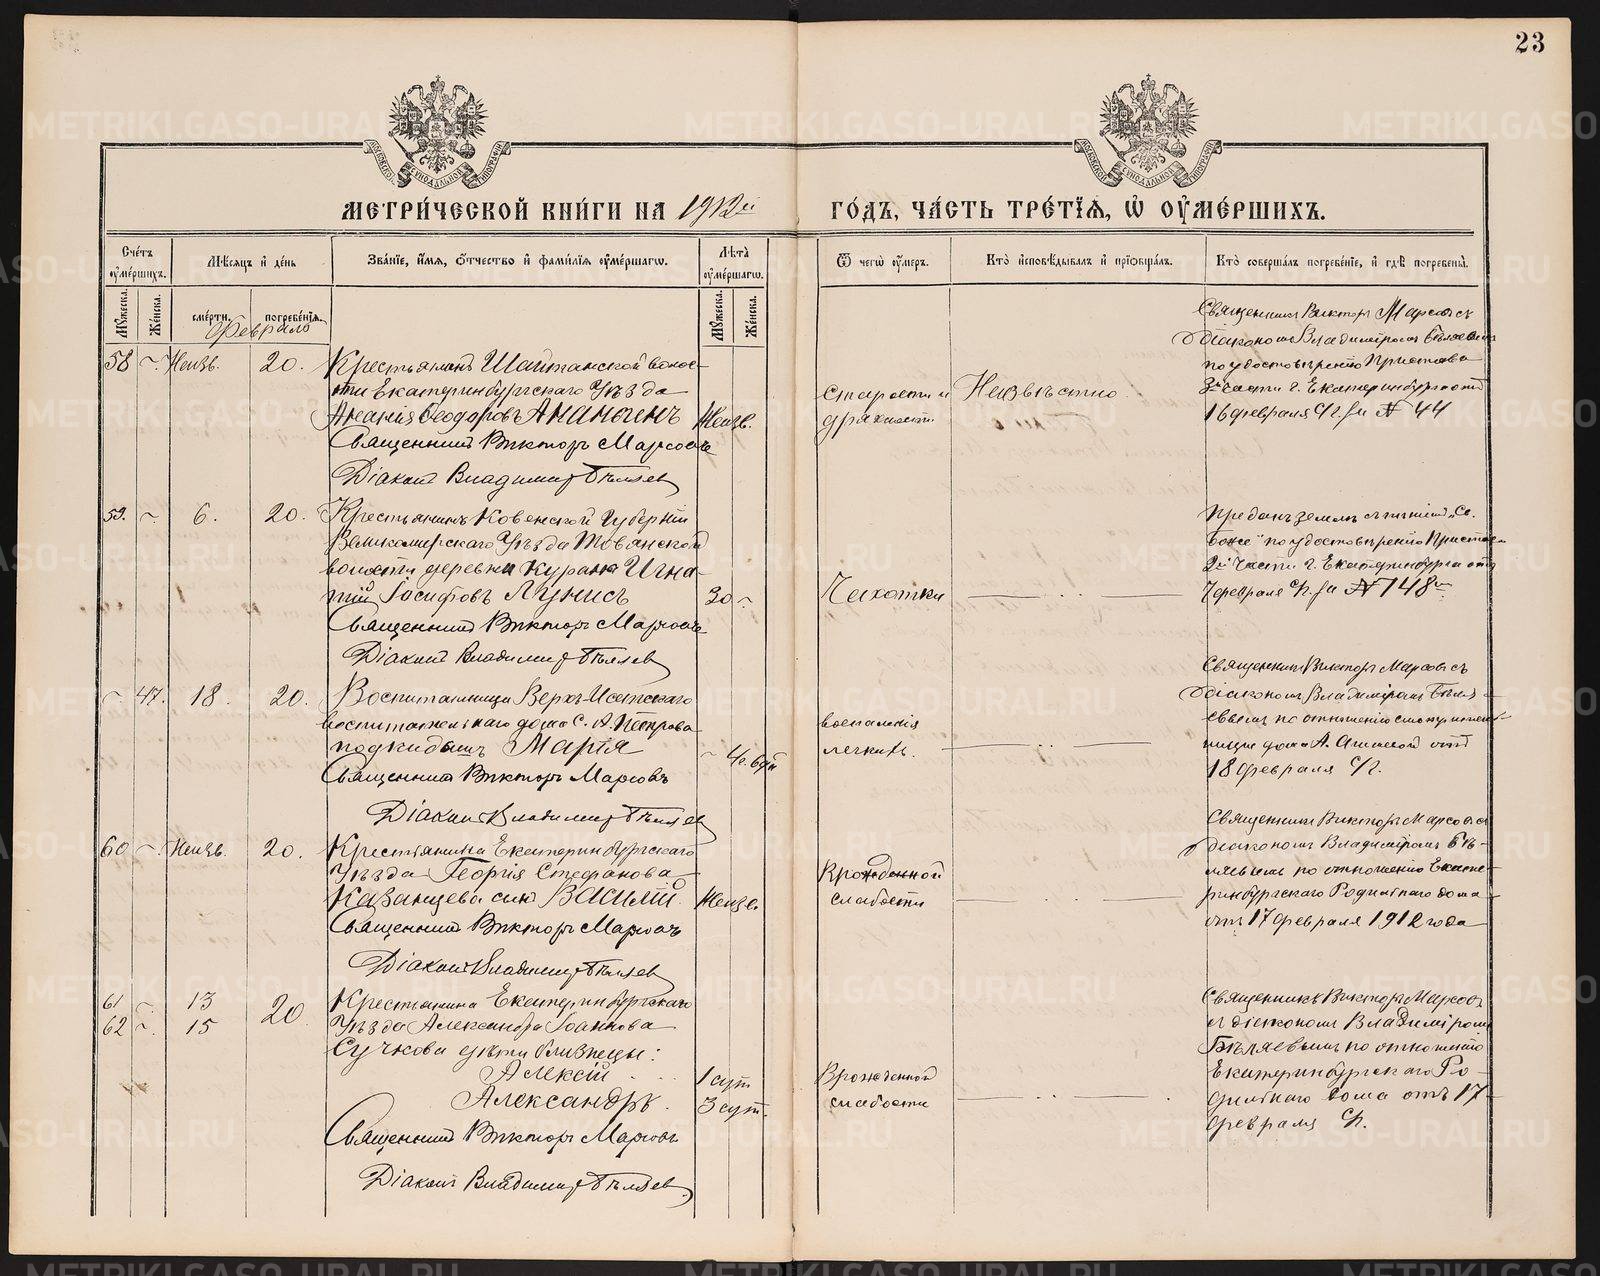 23
МЕТРИ́ЧЕСКОЙ КНИ́ГИ НА 1912й ГО́ДЪ, ЧА́СТЬ ТРЕ́ТІѦ, Ѿ ОУМЕ́РШИХЪ.
Сче́тъ оуме́ршихъ.
Мѣсяцъ и де́нь
Зва́нїе, и́мѧ, о́тчество и фами́лїѧ оуме́ршагѡ.
Лѣта̀ оуме́ршагѡ.
Ѿ чегѡ̀ оу́меръ.
Кто̀ и҆сповѣ́дывалъ и прїѡбща́лъ.
Кто̀ соверша́лъ погребе́нїе, и гдѣ̀ погребены̀.
Мꙋ́жеска.
Же́нска.
сме́рти.
погребе́нїѧ.
Мꙋ́жеска.
Же́нска.
Февраль
58 Неизв. 20.
Крестьянинъ Шайтанской волос-
ти Екатеринбургскаго Уѣзда
Ананія Ѳеодоровъ Ананьинъ
Неизв.
Священникъ Викторъ Марсовъ
Діаконъ Владимиръ Бѣляевъ
Старости и
дряхлости
Неизвѣстно
Священникъ Викторъ Марсовъ съ
діакономъ Владиміромъ Бѣляевымъ
по удостовѣренію Пристава
3й части г. Екатеринбурга отъ
16 февраля с/г. за № 44
59. 6. 20.
Крестьянинъ Ковенской Губерніи
Вилкомирскаго Уѣзда Товянской
волости деревни Курана Игна-
тій Іосифовъ Лунисъ
30
Священникъ Викторъ Марсовъ
Діаконъ Владимиръ Бѣляевъ
Чахотки
Преданъ землѣ съ пѣніемъ „Св.
Боже" по удостовѣренію Пристава
2й Части г. Екатеринбурга отъ
7 февраля с/г. за № 748
47. 18. 20.
Воспитанница Верхъ-Исетскаго
воспитательнаго дома С. А. Петрова
подкидышъ Марія
Священникъ Викторъ Марсовъ
Діаконъ Владимиръ Бѣляевъ
воспаленія
легкихъ.
Священникъ Викторъ Марсовъ съ
діакономъ Владиміромъ Бѣля-
евымъ по отношенію смотритель-
ницы дома А. отъ
18 февраля с/г.
60 Неизв. 20.
Крестьянина Екатеринбургскаго
Уѣзда Георгія Стефанова
Казанцева сынъ Василій.
Неизв.
Священникъ Викторъ Марсовъ
Діаконъ Владимиръ Бѣляевъ
Врожденной
слабости
Священникъ Викторъ Марсовъ съ
діакономъ Владиміромъ Бѣ-
ляевымъ по отношенію Екате-
ринбургскаго Родильнаго дома
отъ 17 февраля 1912 года
61 13
62 15
20
Крестьянина Екатеринбургскаго
Уѣзда Александра Іоаннова
Сучкова дѣти близнецы:
Алексій 1 сут.
Александръ. 3 сут.
Священникъ Викторъ Марсовъ
Діаконъ Владимиръ Бѣляевъ
Врожденной
слабости
Священникъ Викторъ Марсовъ
съ діакономъ Владиміромъ
Бѣляевымъ по отношенію
Екатеринбургскаго Ро-
дильнаго дома отъ 17
февраля с/г.
METRIKI.GASO-URAL.RU